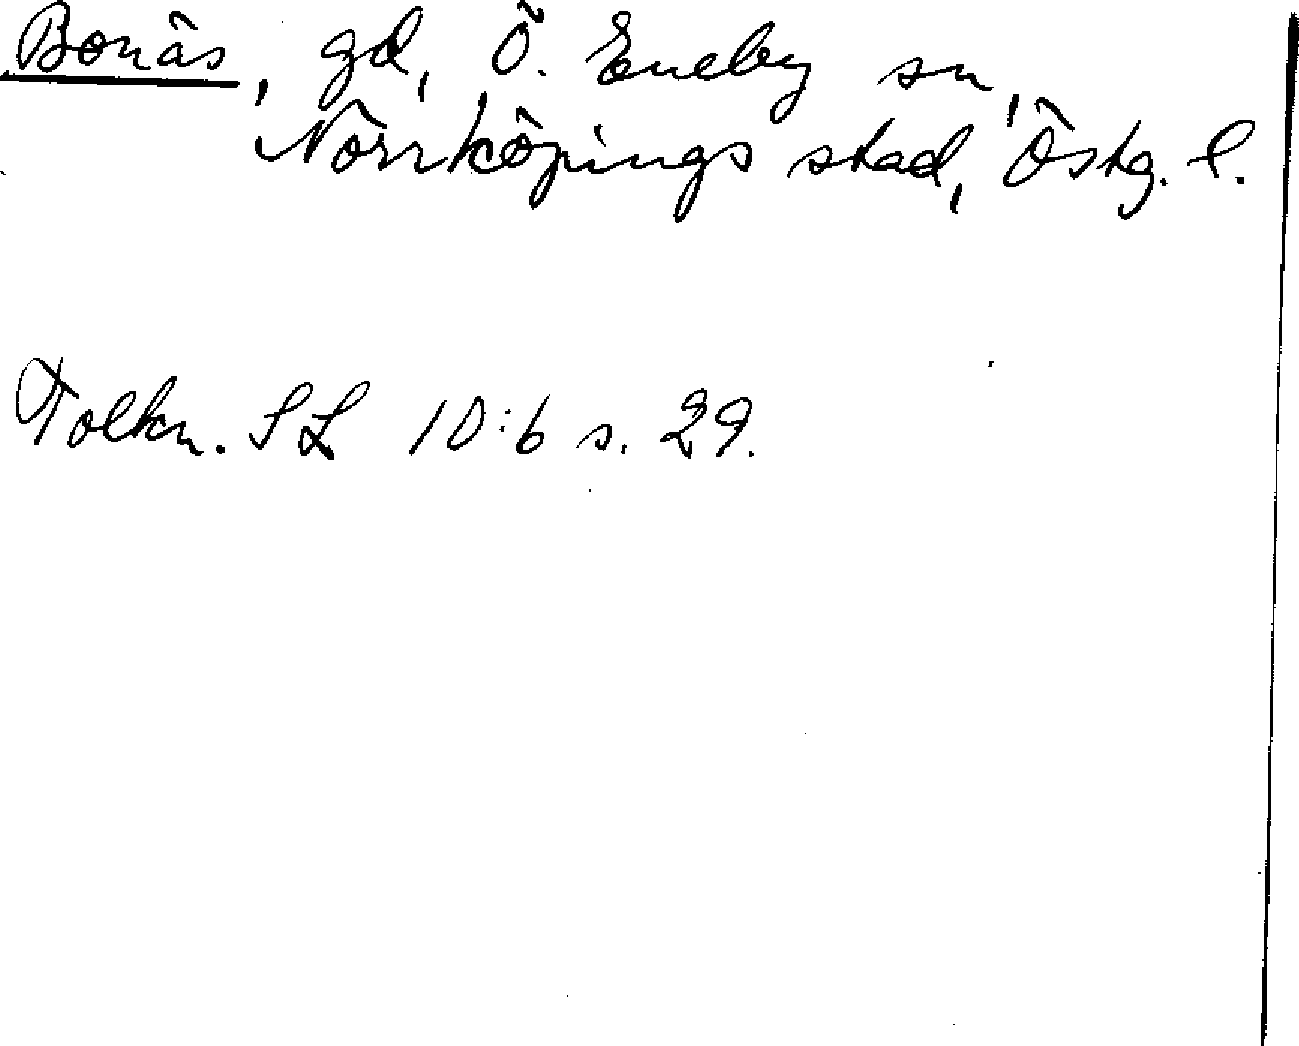 Bonäs, gd, Ö. Eneby sn,
Norrköpings stad, Östg. l.
Tolkn. SL 10:6 s. 29.